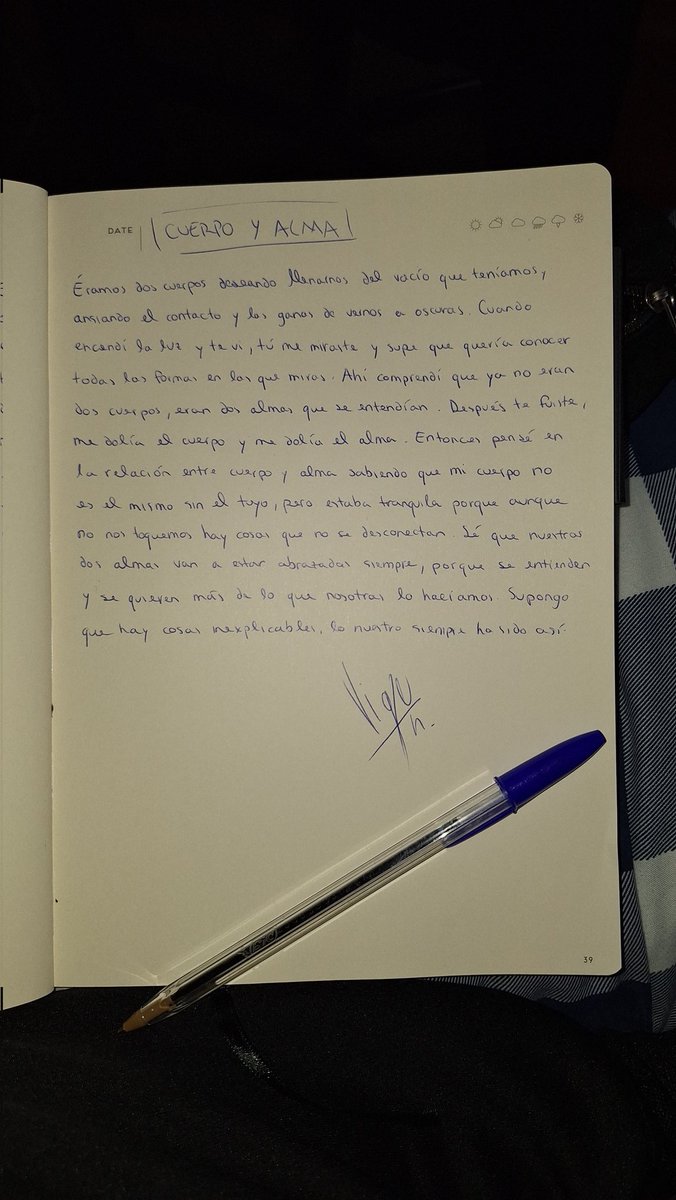 DATE
CUERPO Y ALMA
Éramos dos cuerpos deseando llenarnos del vacío que teníamos,
ansiando el contacto y las ganas de vernos a oscuras. Cuando
encendí la luz y te vi, tú me miraste y supe que quería conocer
todas las formas en las que miras. Ahí comprendí que ya no eran
dos cuerpos, eran dos almas que se entendían. Después te fuiste,
me dolía el cuerpo y me dolía el alma. Entonces pensé en
la relación entre cuerpo y alma sabiendo que mi cuerpo no
es el mismo sin el tuyo, pero estaba tranquila porque aunque
no nos toquemos hay cosas que no se desconectan. Sé que nuestras
dos almas van a estar abrazadas siempre, porque se entienden
y se quieren más de lo que nosotras lo hacíamos. Supongo
que hay cosas inexplicables, lo nuestro siempre ha sido así.
39